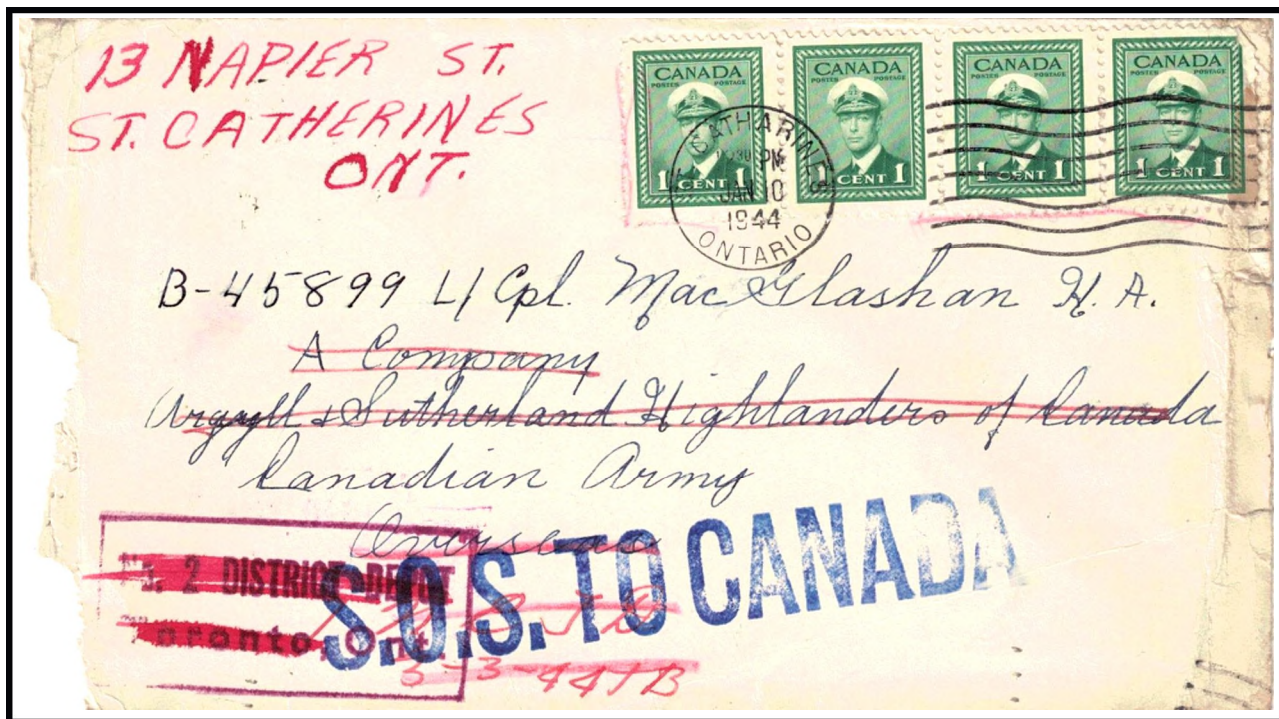 13 NAPIER ST.
ST. CATHERINES
ONT.
CANADA
POSTES POSTAGE
1 CENT 1
CANADA
POSTES POSTAGE
1 CENT 1
CANADA
POSTES POSTAGE
1 CENT 1
CANADA
POSTES POSTAGE
1 CENT 1
CATHARINES
PM
JAN 10
1944
ONTARIO
B-45899 L/Cpl. MacGlashan H. A.
A Company
Argyll & Sutherland Highlanders of Canada
Canadian Army
Overseas
2 DISTRICT DEPOT
Toronto, Ont.
S.O.S. TO CANADA